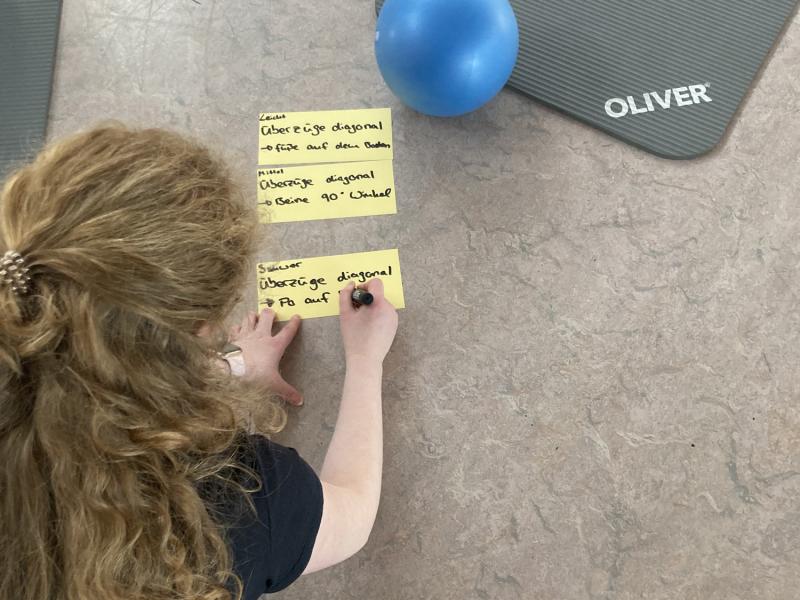 OLIVER
Leicht
Überzüge diagonal
→ Füße auf dem Boden
Mittel
Überzüge diagonal
→ Beine 90° Winkel
Schwer
Überzüge diagonal
→ Po auf